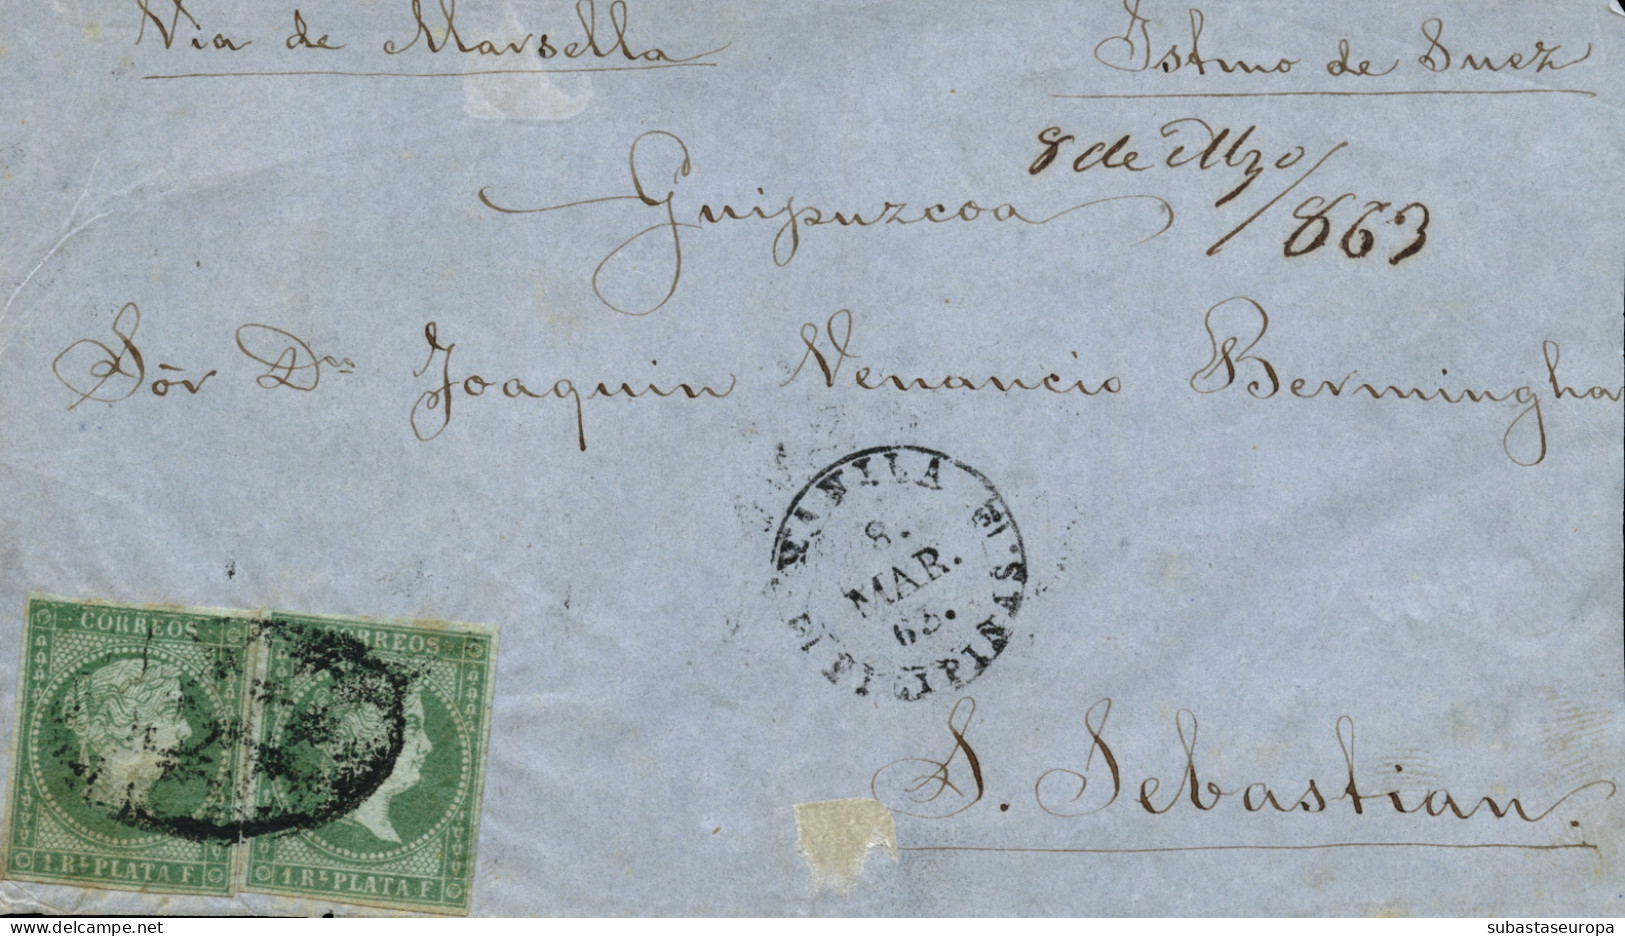 Via de Marsella
Istmo de Suez
8 de Mzo/863
Guipuzcoa
Sör Dn Joaquin Venancio Bermingha
MANILA
8.
MAR.
63.
ISLAS FILIPINAS
CORREOS
1 Rl PLATA F.
CORREOS
1 Rl PLATA F.
S. Sebastian.
subastaseuropa